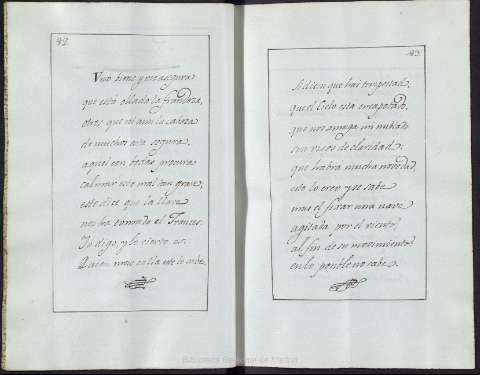 42.
Uno viene, y me asegura
que está ollado la grandeza,
otros que ni aun la cabeza
de muchos esta segura,
aquel con ótras procura
calmar este mal tan grave,
este dice que la llave
nos ha tomado el Frances:
Yo digo, y lo cierto es:
Quien mas calla este lo sabe.
43.
Si dicen que hai tempestad,
que el Cielo esta encapotado,
que nos amaga un nublado
sin rasgos de claridad:
que habrá mucha novedad,
esto lo creo, y se sabe
mas el fixar una nave
agitada por el viento,
al fin de su movimiento
en lo posible no cabe.
Biblioteca Regional de Madrid